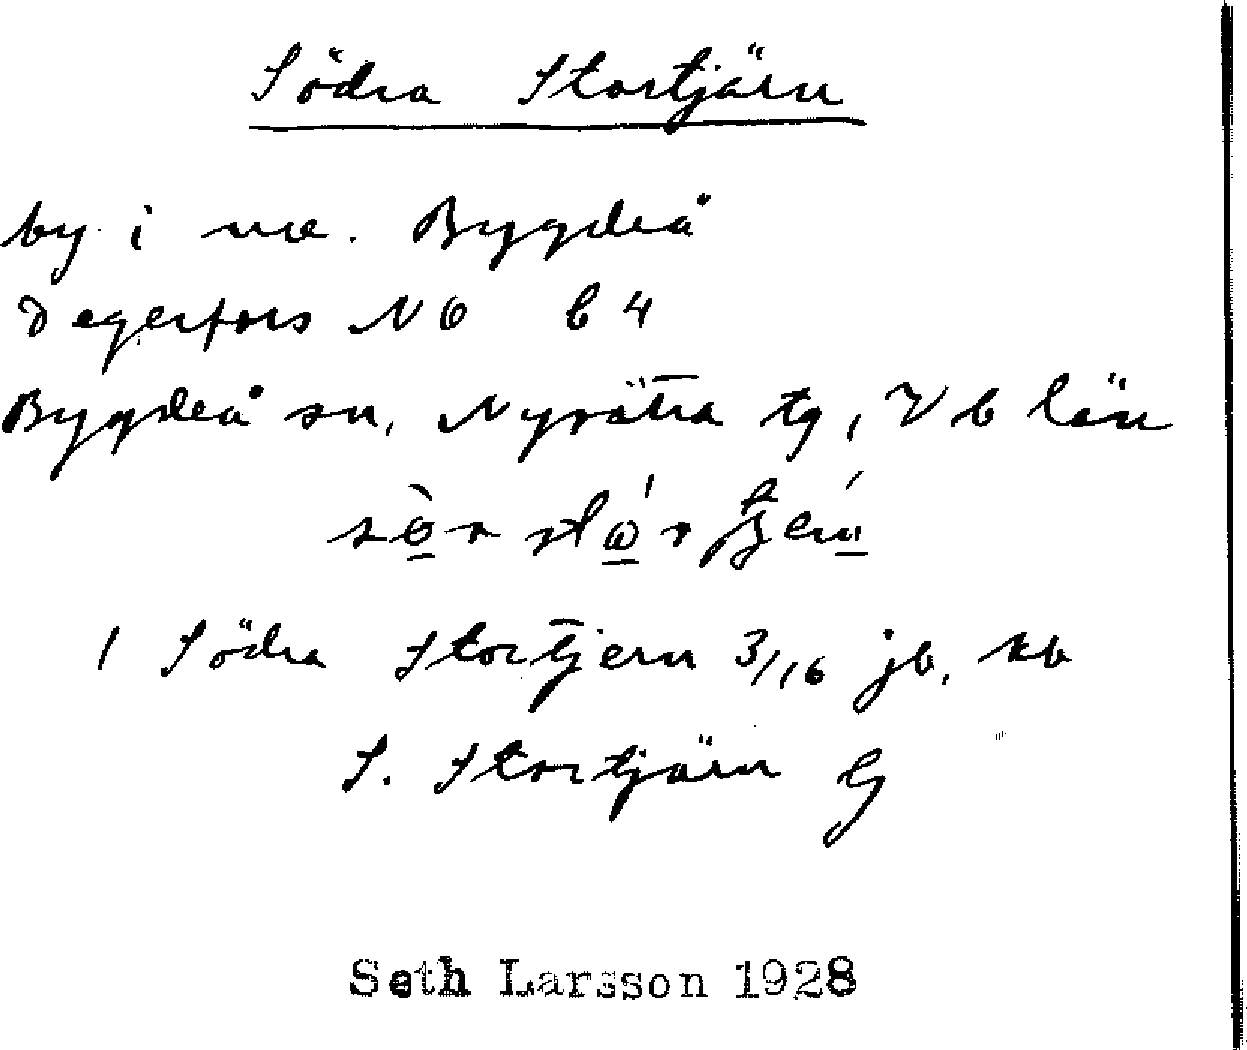 Södra Stortjärn
by i nv. Bygdeå
Degerfors NO b 4
Bygdeå sn, Nysätra tg, Vb län
1 Södra Stortjern 3/16 jb, kb
S. Stortjärn G
Seth Larsson 1928